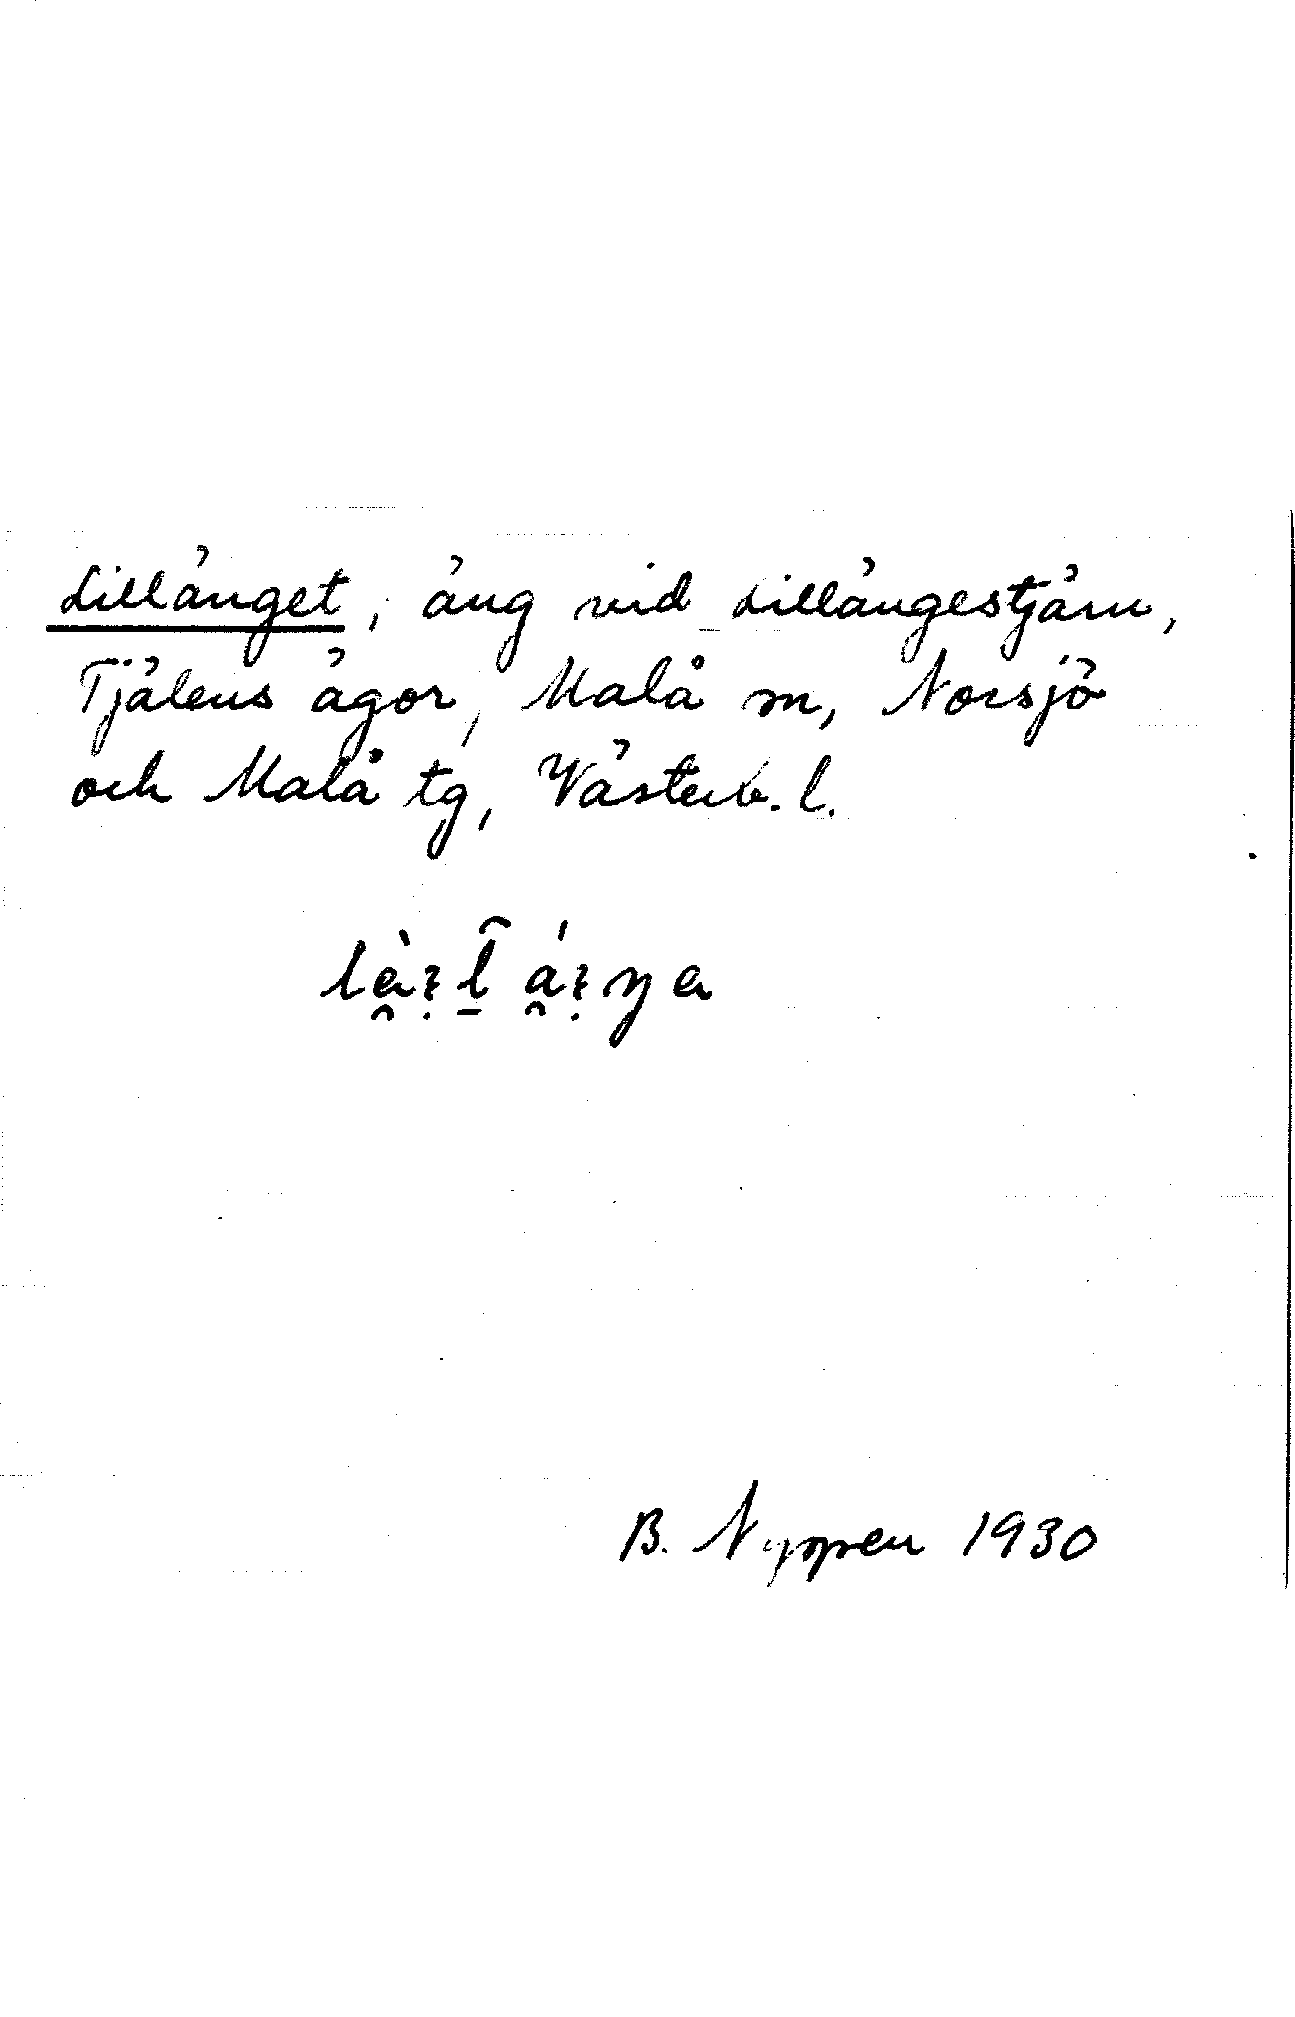 Lillänget, äng vid Lillängestjärn,
Tjälens ägor, Malå sn, Norsjö
och Malå tg, Västerb. l.
B. Nyppen 1930